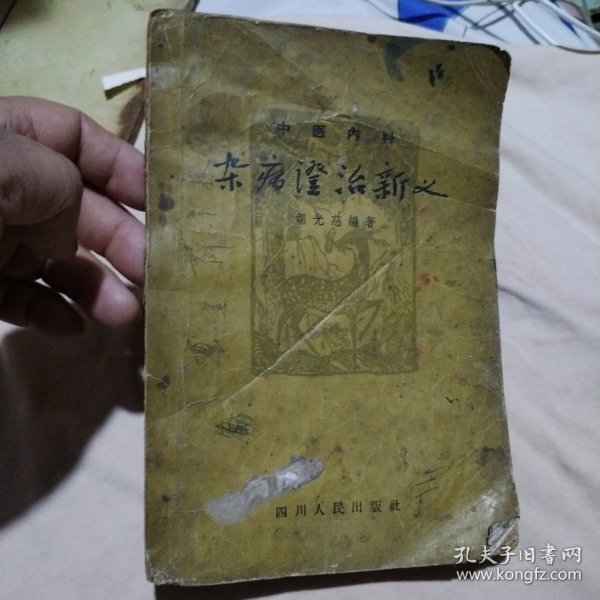 中医内科
杂病證治新义
胡光慈編著
四川人民出版社
孔夫子旧書网
www.kongfz.com